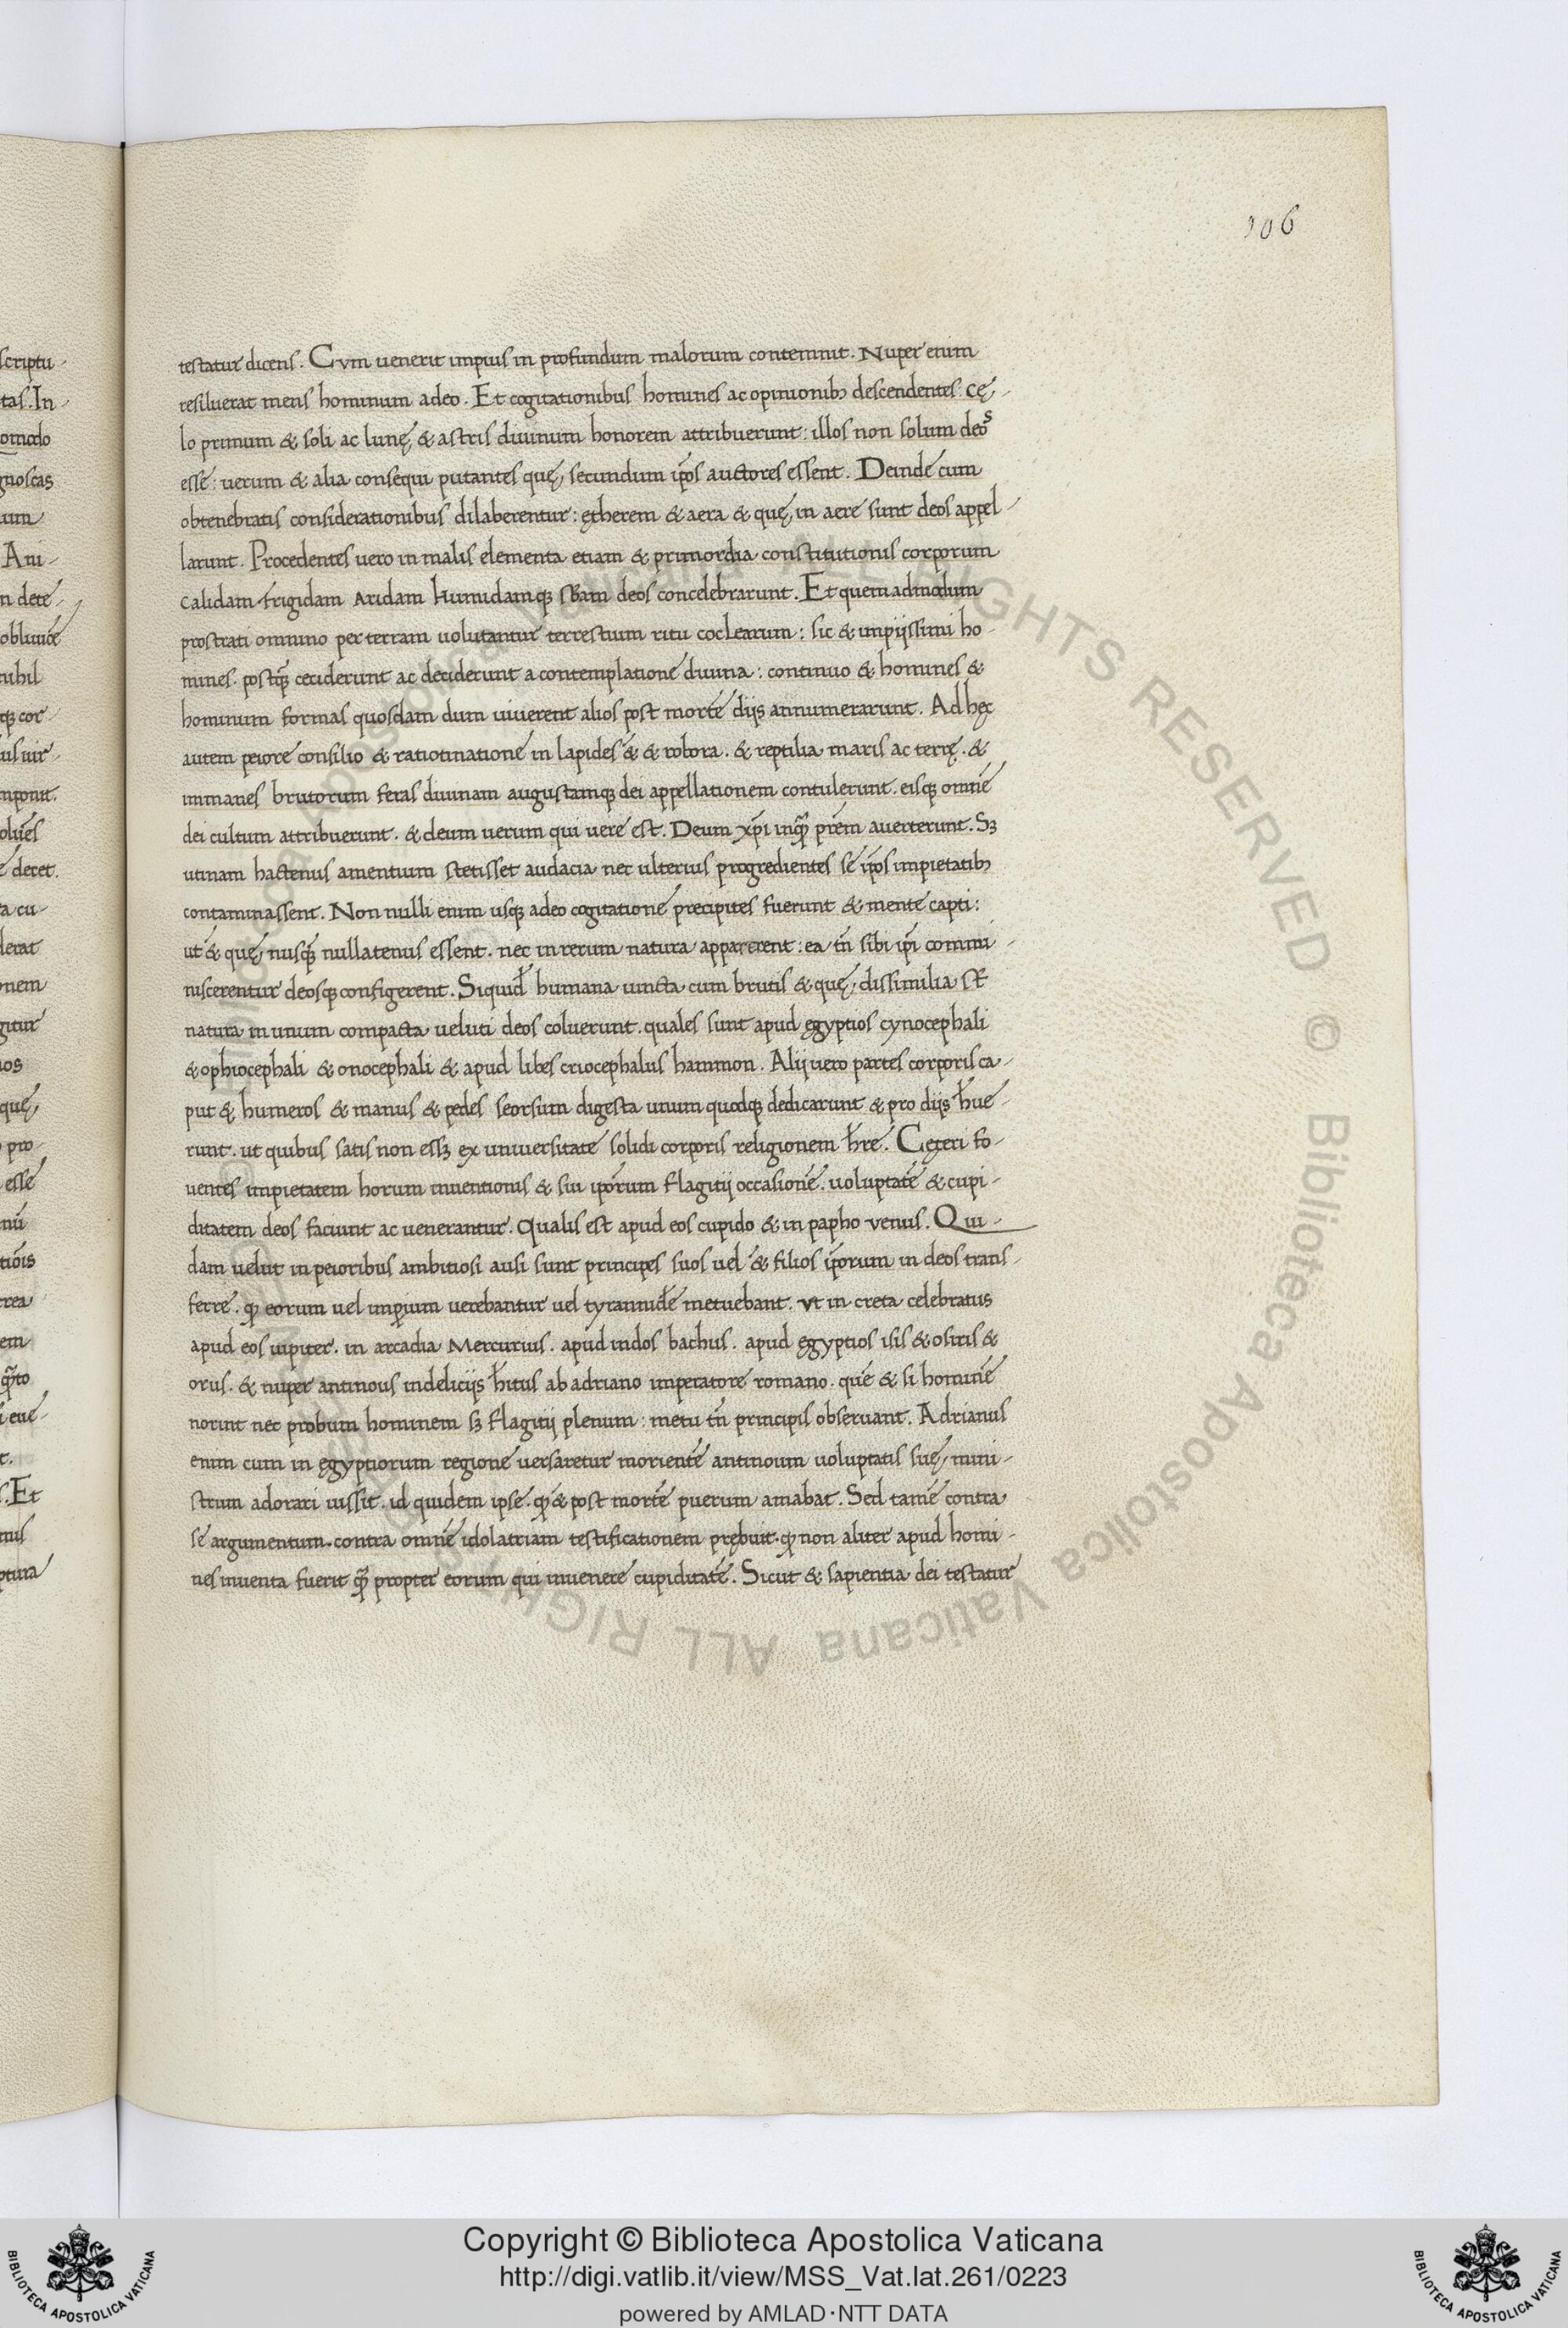 106
testatur dicens. Cvm uenerit impius in profundum malorum contemnit. Nuper enim
resiluerat mens hominum a deo. Et cogitationibus homines ac opinionibꝫ descendentes cę-
lo primum & soli ac lunę & astris diuinum honorem attribuerunt: illos non solum deos
esse: uerum & alia consequi putantes quę secundum ip̄os auctores essent. Deinde cum
obtenebratis considerationibus dilaberentur: ętherem & aera & quę in aere sunt deos appel-
larunt. Procedentes uero in malis elementa etiam & primordia constitutionis corporum
calidam frigidam aridam humidamqꝫ sb̄am deos concelebrarunt. Et quemadmodum
prostrati omnino per terram uolutantur terrestium ritu coclearum: sic & impijssimi ho-
mines. postqꝫ̄ ceciderunt ac deciderunt a contemplatione diuina: continuo & homines &
hominum formas quosdam dum uiuerent alios post mortē dijs annumerarunt. Ad hęc
autem peiore consilio & ratiotinatione in lapides &̄ & robora. & reptilia maris ac terrę. &
immanes brutorum feras diuinam augustamqꝫ dei appellationem contulerunt. eisqꝫ omnē
dei cultum attribuerunt. & deum uerum qui uere est. Deum xp̄i inqꝫ̄ pr̄em auerterunt. Sꝫ
utinam hactenus amentium stetisset audacia nec ulterius progredientes se ip̄os impietatibꝫ
contaminassent. Non nulli enim usqꝫ adeo cogitatione precipites fuerunt & mente capti:
ut & quę nusqꝫ̄ nullatenus essent. nec in rerum natura apparerent: ea tn̄ sibi ip̄i commi-
niscerentur deosqꝫ configerent. Siquid̄ humana uincta cum brutis & quę dissimilia st̄
natura in unum compacta ueluti deos coluerunt. quales sunt apud egyptios cynocephali
& ophiocephali & onocephali & apud libes criocephalus hammon. Alij uero partes corporis ca-
put & humeros & manus & pedes seorsum digesta unum quodqꝫ dedicarunt & pro dijs h̄ue-
runt. ut quibus satis non essꝫ ex uniuersitate solidi corporis religionem h̄re. Cęteri fo-
uentes impietatem horum inuentionis & sui ip̄orum flagitij occasionē. uoluptatē & cupi-
ditatem deos faciunt ac uenerantur. Qualis est apud eos cupido & in papho venus. Qui-
dam uelut in peioribus ambitiosi ausi sunt principes suos uel & filios ip̄orum in deos trans-
ferre. qꝫ eorum uel imp̄ium uerebantur uel tyrannidē metuebant. vt in creta celebratus
apud eos iupiter. in arcadia Mercurius. apud indos bachus. apud ęgyptios isis & osiris &
orus. & nuper antinous in delicijs h̄itus ab adriano imperatore romano. quē & si hominē
norint nec probum hominem sꝫ flagitij plenum: metu tn̄ principis obseruant. Adrianus
enim cum in ęgyptiorum regione uersaretur morientē antinoum uoluptatis suę mini-
strum adorari iussit. id quidem ipse. qꝫ & post mortē puerum amabat. Sed tamē contra
se argumentum. contra omnē idolatriam testificationem prębuit. qꝫ non aliter apud homi-
nes inuenta fuerit qꝫ̄ propter eorum qui inuenere cupiditatē. Sicut & sapientia dei testatur
Copyright © Biblioteca Apostolica Vaticana
http://digi.vatlib.it/view/MSS_Vat.lat.261/0223
powered by AMLAD·NTT DATA